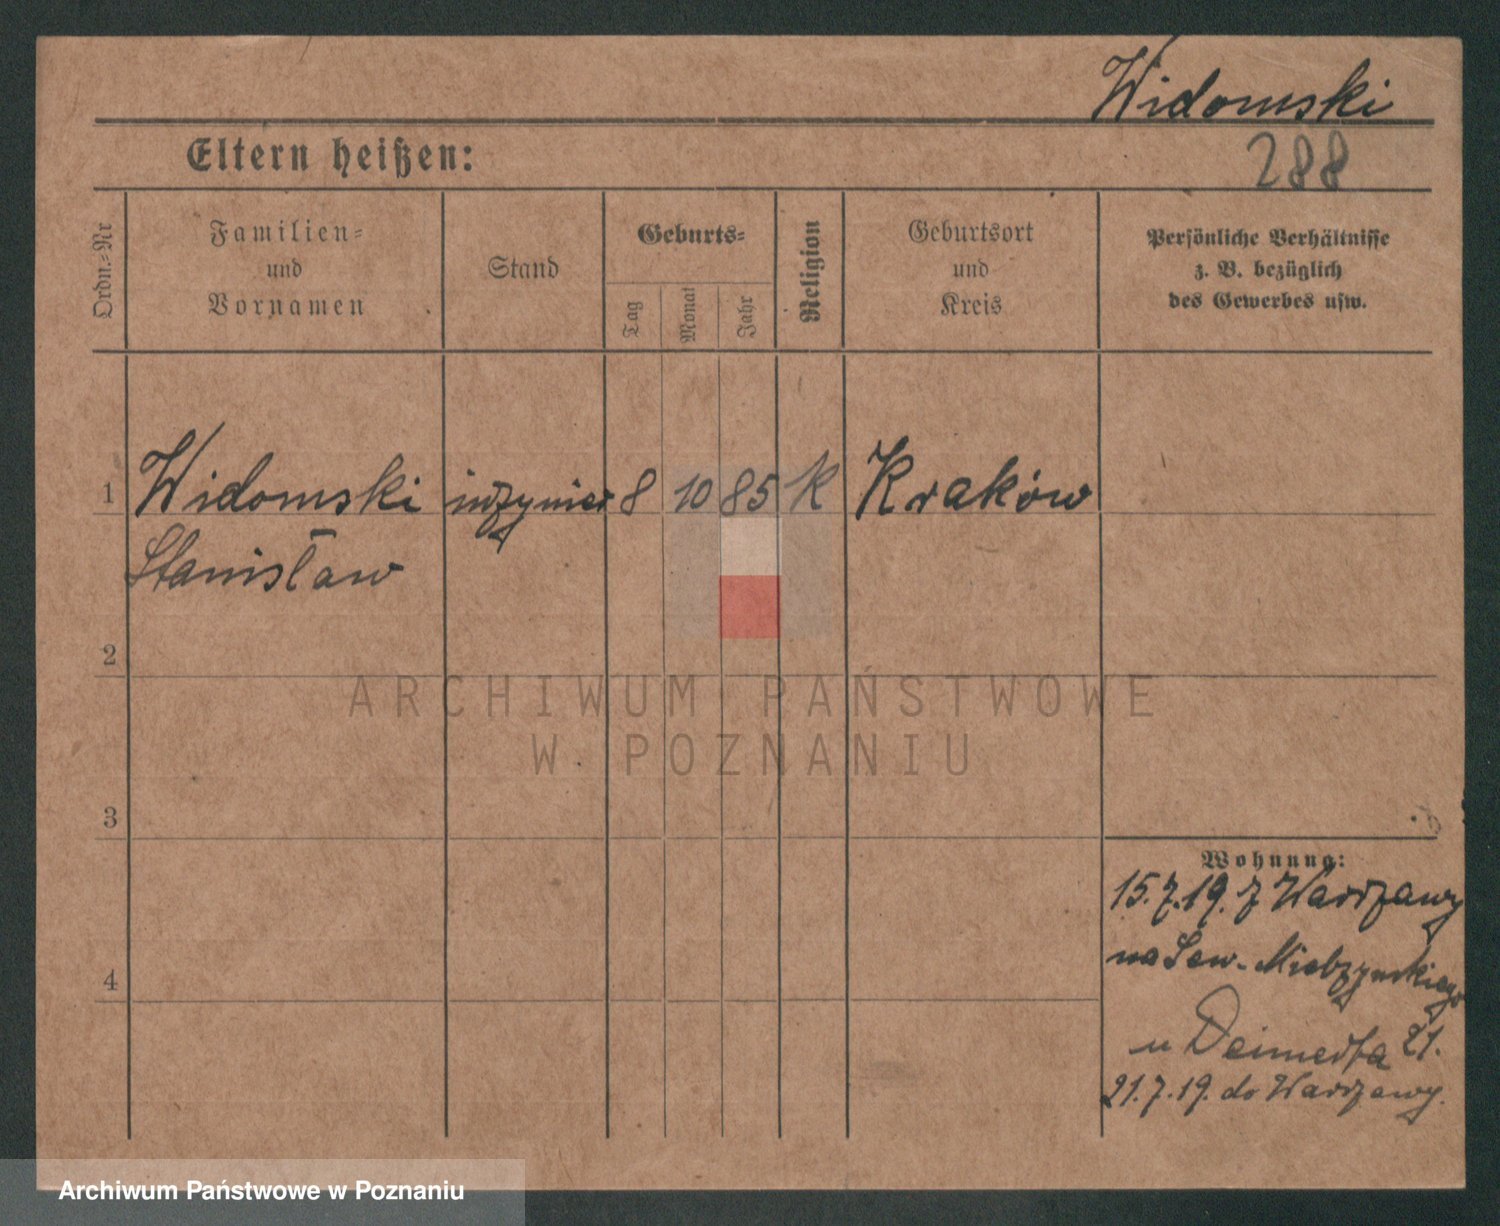 Widomski
288
Eltern heißen:
Ordn.-Nr
Familien-
und
Vornamen
Stand
Geburts-
Tag
Monat
Jahr
Religion
Geburtsort
und
Kreis
Persönliche Verhältnisse
z. B. bezüglich
des Gewerbes usw.
1 Widomski inżynier 8 10 85 K Kraków
Stanisław
2
3
4
ARCHIWUM PAŃSTWOWE
W POZNANIU
Wohnung:
15.7.19. z Warszawy
na Sew. Mielżyńskiego
u Deimerta 21.
21.7.19. do Warszawy.
Archiwum Państwowe w Poznaniu